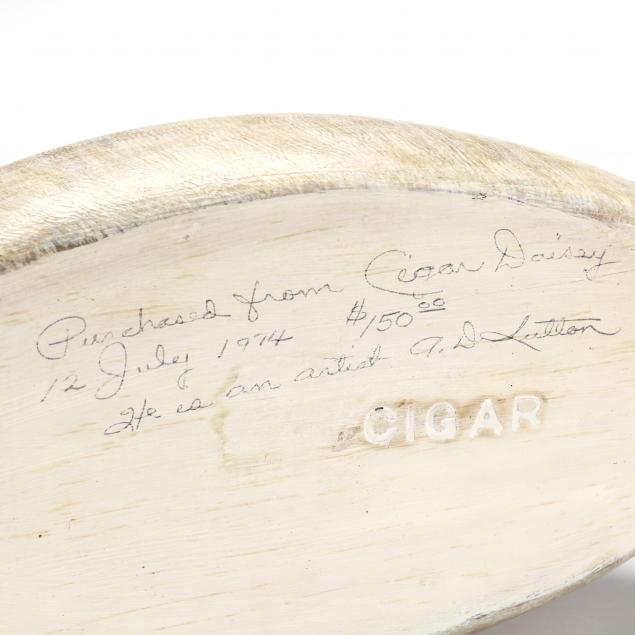 Purchased from Cigar Daisey
12 July 1974 $150.00
He is an artist A. D. Sutton
CIGAR